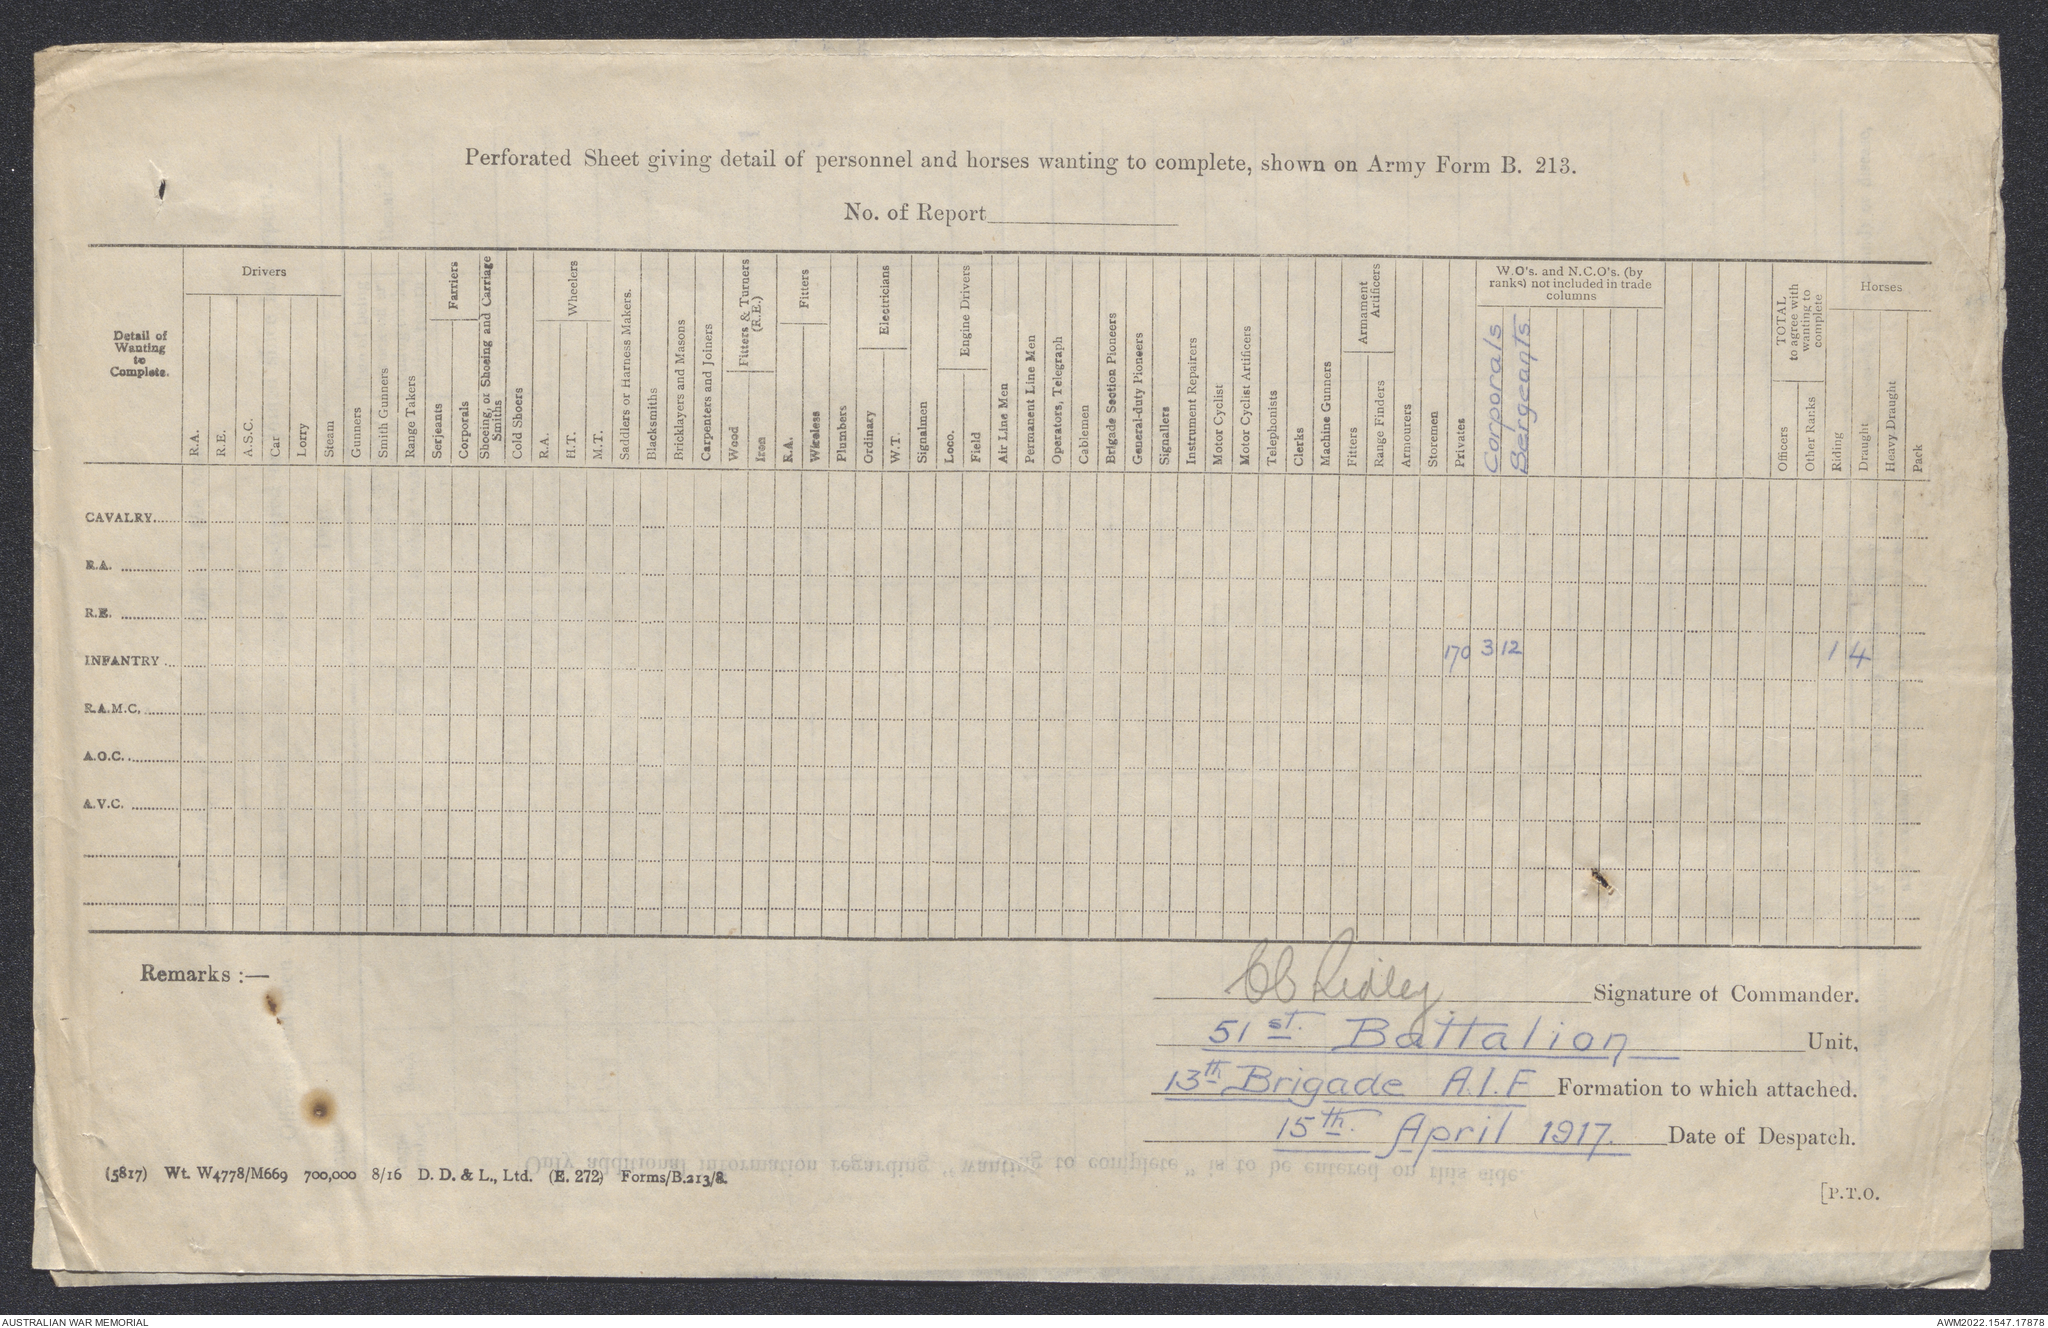 Perforated Sheet giving detail of personnel and horses wanting to complete, shown on Army Form B. 213.
No. of Report
Detail of
Wanting
to
Complete.
Drivers
R.A.
R.E.
A.S.C.
Car
Lorry
Steam
Gunners
Smith Gunners
Range Takers
Farriers
Serjeants
Corporals
Shoeing, or Shoeing and Carriage
Smiths
Cold Shoers
Wheelers
R.A.
H.T.
M.T.
Saddlers or Harness Makers.
Blacksmiths
Bricklayers and Masons
Carpenters and Joiners
Fitters & Turners
(R.E.)
Wood
Iron
Fitters
R.A.
Wireless
Plumbers
Electricians
Ordinary
W.T.
Signalmen
Engine Drivers
Loco.
Field
Air Line Men
Permanent Line Men
Operators, Telegraph
Cablemen
Brigade Section Pioneers
General-duty Pioneers
Signallers
Instrument Repairers
Motor Cyclist
Motor Cyclist Artificers
Telephonists
Clerks
Machine Gunners
Armament
Artificers
Fitters
Range Finders
Armourers
Storemen
Privates
W.O's. and N.C.O's. (by
ranks) not included in trade
columns
Corporals
Sergeants
TOTAL
to agree with
wanting to
complete
Officers
Other Ranks
Horses
Riding
Draught
Heavy Draught
Pack
CAVALRY
R.A.
R.E.
INFANTRY 170 3 12 1 4
R.A.M.C.
A.O.C.
A.V.C.
Remarks :—
CC Ridley Signature of Commander.
51st. Battalion Unit,
13th Brigade A.I.F Formation to which attached.
15th. April 1917. Date of Despatch.
Only additional information regarding "wanting to complete" is to be entered on this side.
(5817) Wt. W4778/M669 700,000 8/16 D. D. & L., Ltd. (E. 272) Forms/B.213/8.
[P.T.O.
AUSTRALIAN WAR MEMORIAL
AWM2022.1547.17878